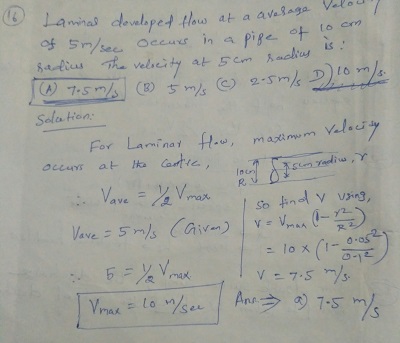 16 Laminal developed flow at a average velocity
of 5m/sec occurs in a pipe of 10 cm
radius The velocity at 5cm radius is:
(A) 7.5 m/s (B) 5 m/s (C) 2.5 m/s D) 10 m/s.
Solution:
For Laminar flow, maximum velocity
occurs at the centre,
10cm R 5cm radius, r
∴ Vave = 1/2 Vmax
Vave = 5 m/s (Given)
∴ 5 = 1/2 Vmax
Vmax = 10 m/sec
so find V using,
V = Vmax (1 - r²/R²)
= 10 × (1 - 0.05²/0.1²)
V = 7.5 m/s.
Ans ⇒ a) 7.5 m/s